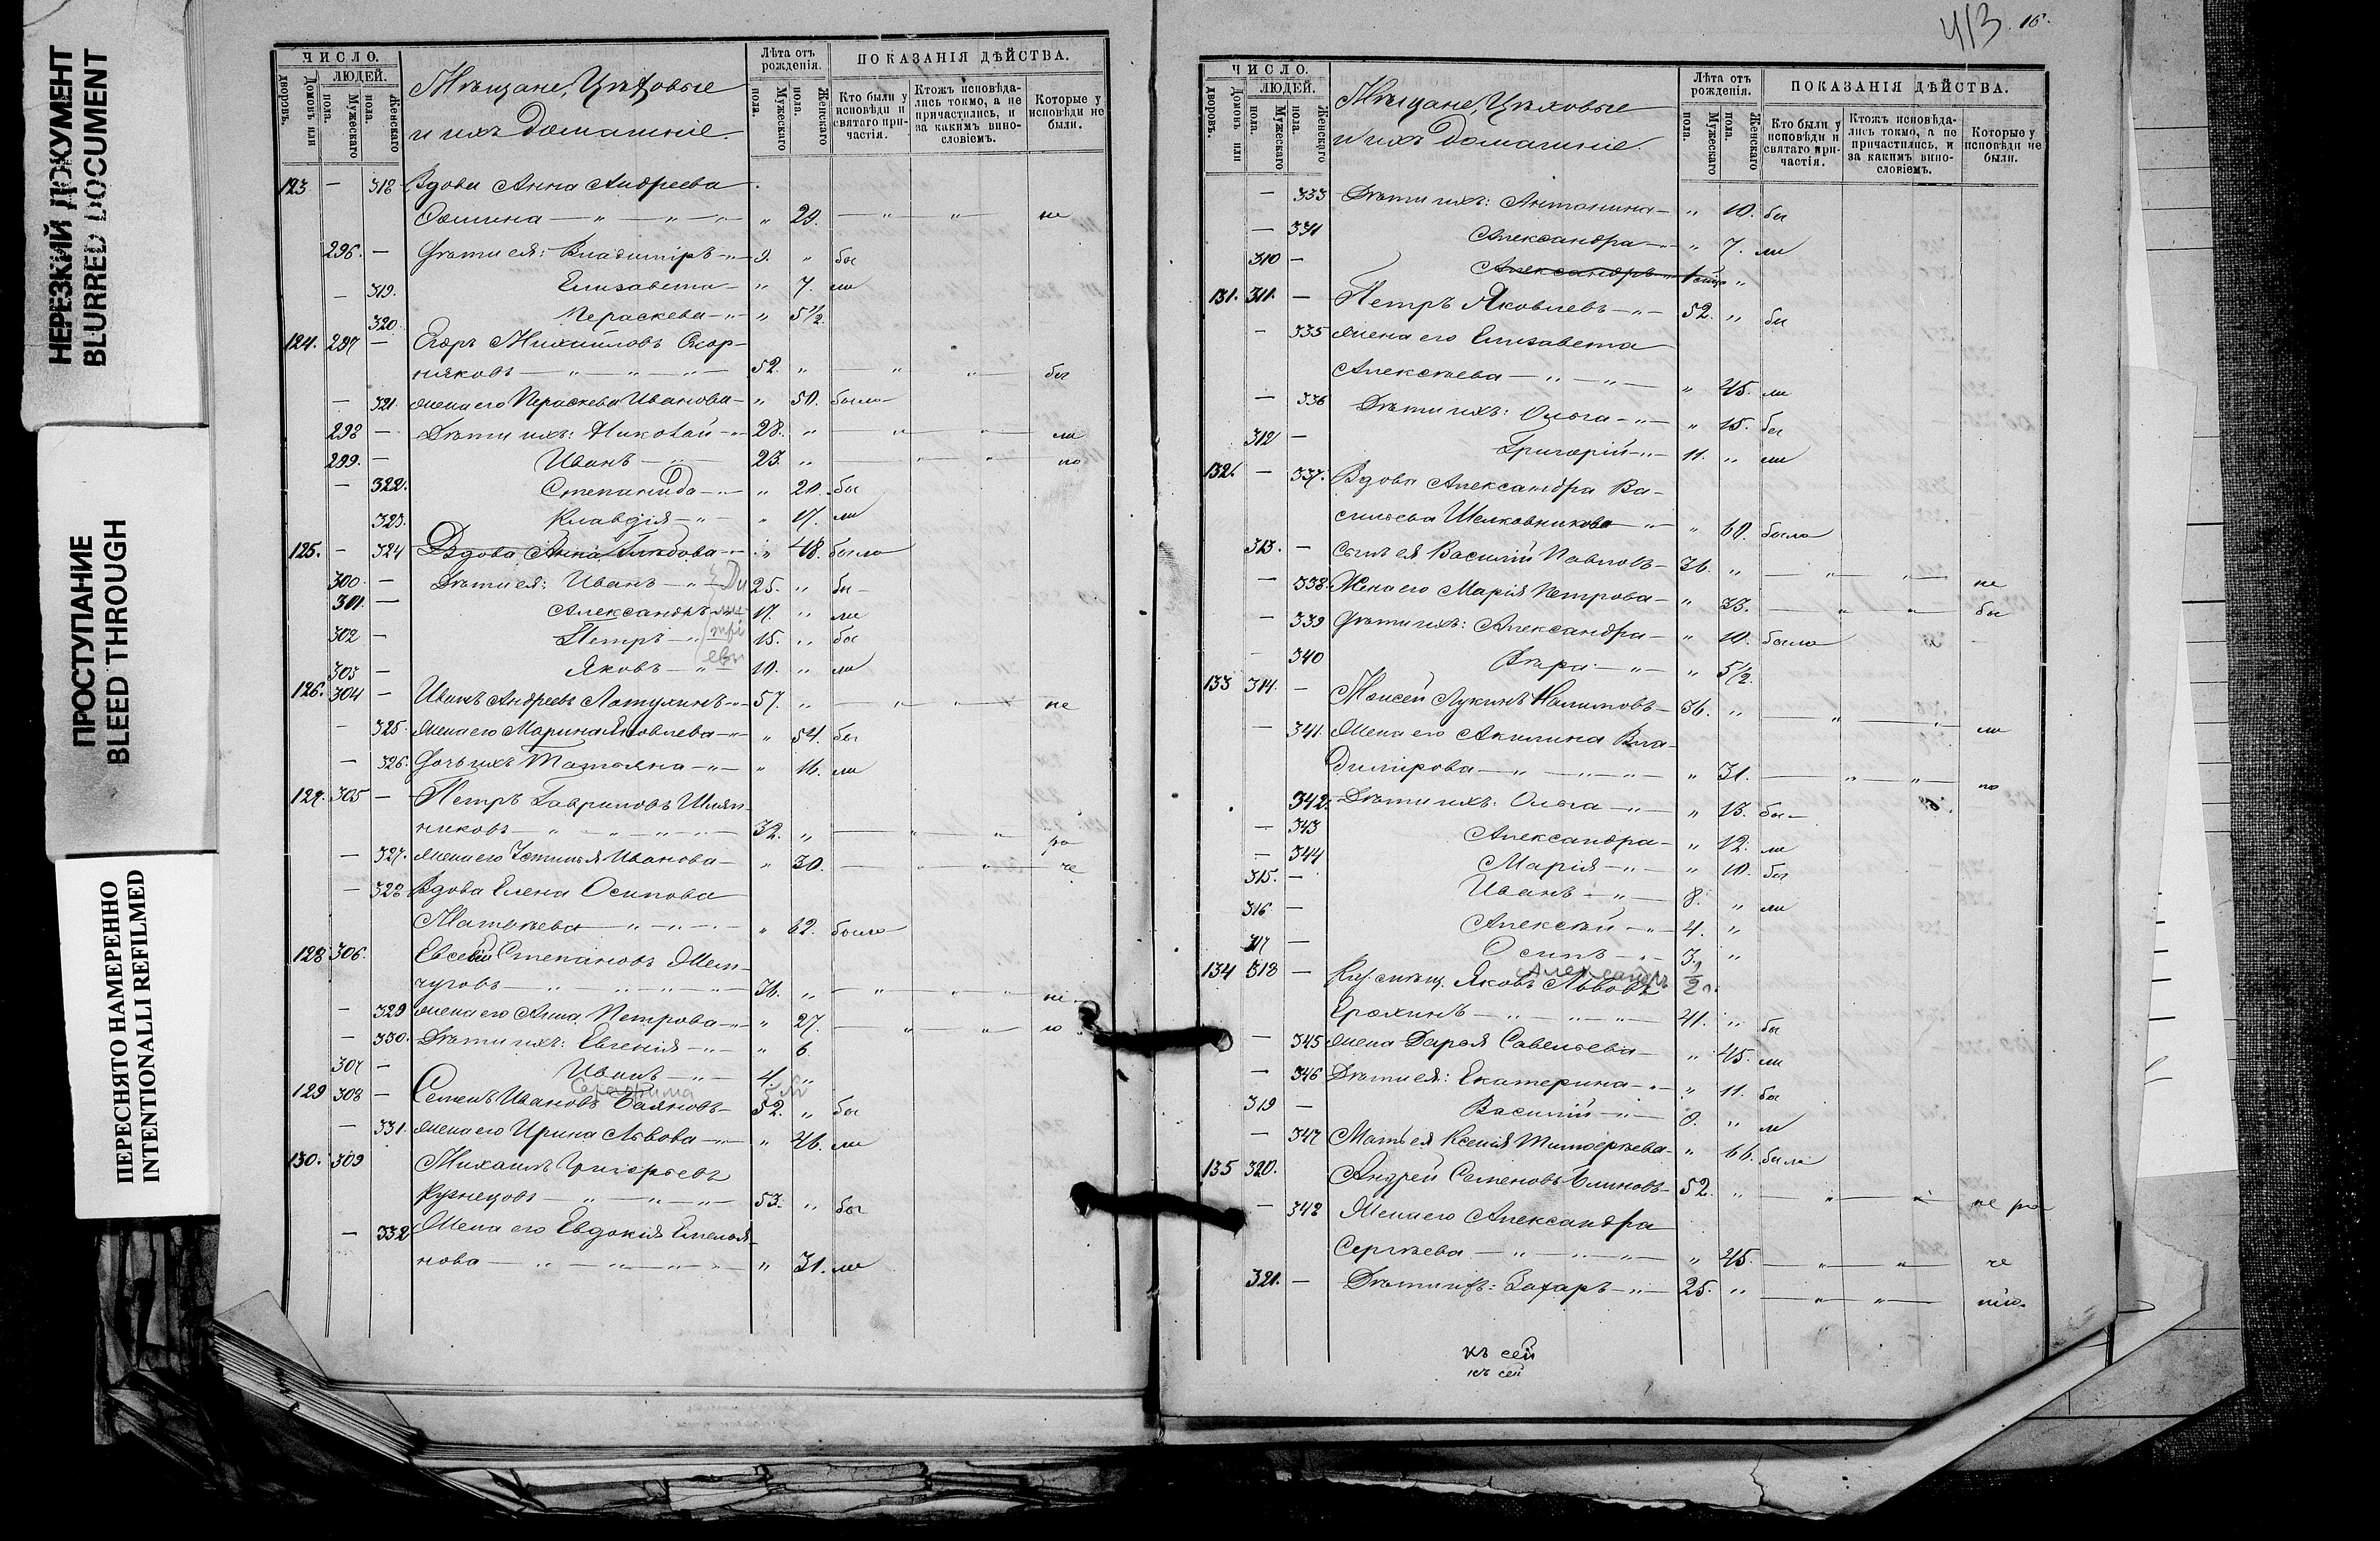 НЕРЕЗКИЙ ДОКУМЕНТ
BLURRED DOCUMENT
ПРОСТУПАНИЕ
BLEED THROUGH
ПЕРЕСНЯТО НАМЕРЕННО
INTENTIONALLI REFILMED
ЧИСЛО.
ЛЮДЕЙ.
Домовъ или дворовъ.
Мужескаго пола.
Женскаго пола.
Мѣщане, Цѣховые
и ихъ домашніе.
Лѣта отъ рожденія.
Мужескаго пола.
Женскаго пола.
ПОКАЗАНІЯ ДѢЙСТВА.
Кто были у исповѣди и святаго причастія.
Ктожъ исповѣдались токмо, а не причастились, и за какимъ винословіемъ.
Которые у исповѣди не были.
123 — 318 Вдова Анна Андреева
„ 29. — „ „ — не
296. — Дѣти ея: Владиміръ — 9. „ бы
— 319. Елисавета — „ 7. ли
320 Параскева — „ 5 1/2
124. 297 — Егоръ Михайловъ Скор-
няковъ — „ — „ — 52. „ — „ „ — бы
— 321. жена его Параскева Иванова — „ 50. была
298 — Дѣти ихъ: Николай — 28. „ — „ „ — ли
299. — Иванъ — 23. „ — „ „ — по
— 322. Степанида — „ 20. бы
323. Клавдія — „ 17. ли
125. — 324 Вдова Анна Глѣбова — „ 48. была
300. — Дѣти ея: Иванъ — Ди 25. „ бы
301. — Александръ — ми 17. „ ли
302 — Петръ — трі 15. „ бы
303 — Яковъ — евы 10. „ ли
126. 304 — Иванъ Андреевъ Латухинъ — 57. „ — „ „ — не
— 325. жена его Марина Яковлева — „ 54. бы
— 326. дочь ихъ Татьяна — „ 16. ли
127. 305 — Петръ Гавриловъ Шляп-
никовъ — „ — „ — 32. „ — „ „ ра
— 327. жена его Устинья Иванова — „ 30. — „ „ — че
— 328 Вдова Елена Осипова
Матвѣева — „ — „ 62. была
128 306. Евсевій Степановъ Жем-
чуговъ — „ — „ — 31. „ — „ „ — ні
— 329 жена его Анна Петрова — „ 27. — „ „ — ю
— 330. Дѣти ихъ: Евгенія — „ 6
307 — Иванъ — 4. „
Серафима
129 308 — Семенъ Ивановъ Баяновъ — 52. „ бы
— 331. жена его Ирина Львова — „ 46. ли
130. 309 Михаилъ Григорьевъ
Кузнецовъ — „ — „ — 53. „ бы
— 332 Жена его Евдокія Емелья-
нова — „ — „ — „ 31. ли
413 16.
ЧИСЛО.
ЛЮДЕЙ.
Домовъ или дворовъ.
Мужескаго пола.
Женскаго пола.
Мѣщане, Цѣховые
и ихъ домашніе.
Лѣта отъ рожденія.
Мужескаго пола.
Женскаго пола.
ПОКАЗАНІЯ ДѢЙСТВА.
Кто были у исповѣди и святаго причастія.
Ктожъ исповѣдались токмо, а не причастились, и за какимъ винословіемъ.
Которые у исповѣди не были.
— 333 Дѣти ихъ: Антонина — „ 10. бы
— 334 Александра — „ 7. ли
310 — Александръ — 1 „
131. 311. — Петръ Яковлевъ — 52. „ бы
— 335 жена его Елисавета
Алексѣева — „ — „ 45. ли
— 336 Дѣти ихъ: Ольга — „ 15. бы
312 — Григорій — 11. „ ли
132. — 337. Вдова Александра Ва-
сильева Шелковникова — „ 60. была
313. — Сынъ ея Василій Павловъ — 36. „ — „ „ — не
— 338. Жена его Марія Петрова — „ 33. — „ „ — бы
— 339 Дѣти ихъ: Александра — „ 10. была
— 340 Вѣра — „ 5 1/2.
133 314. — Моисей Лукинъ Налимовъ — 36. „ — „ „ — ли
— 341. Жена его Акилина Вла-
димірова — „ — „ 31. — „ „ — по
342. Дѣти ихъ: Ольга — „ 13. бы
— 343 Александра — „ 12. ли
— 344 Марія — „ 10. бы
315. — Иванъ — 8. „ ли
316 — Алексѣй — 4. „
317 — Осипъ — 3. „
Александръ 1/2
134 318 — Яковъ Львовъ
Ерохинъ — „ — „ — 41. „ бы
— 345 жена Дарья Савельева — „ 45. ли
— 346 Дѣти ея: Екатерина — „ 11. бы
319 — Василій — 9. „ ли
— 347 Мать ея Ксенія Тимоѳеева — „ 66. была
135 320. Андрей Семеновъ Блиновъ — 52. „ — „ „ — не ра
— 348 Жена его Александра
Сергѣева — „ — „ 45. — „ „ — че
321. — Дѣти ихъ: Захаръ — 25. „ — „ „ — нію.
къ сей
къ сей